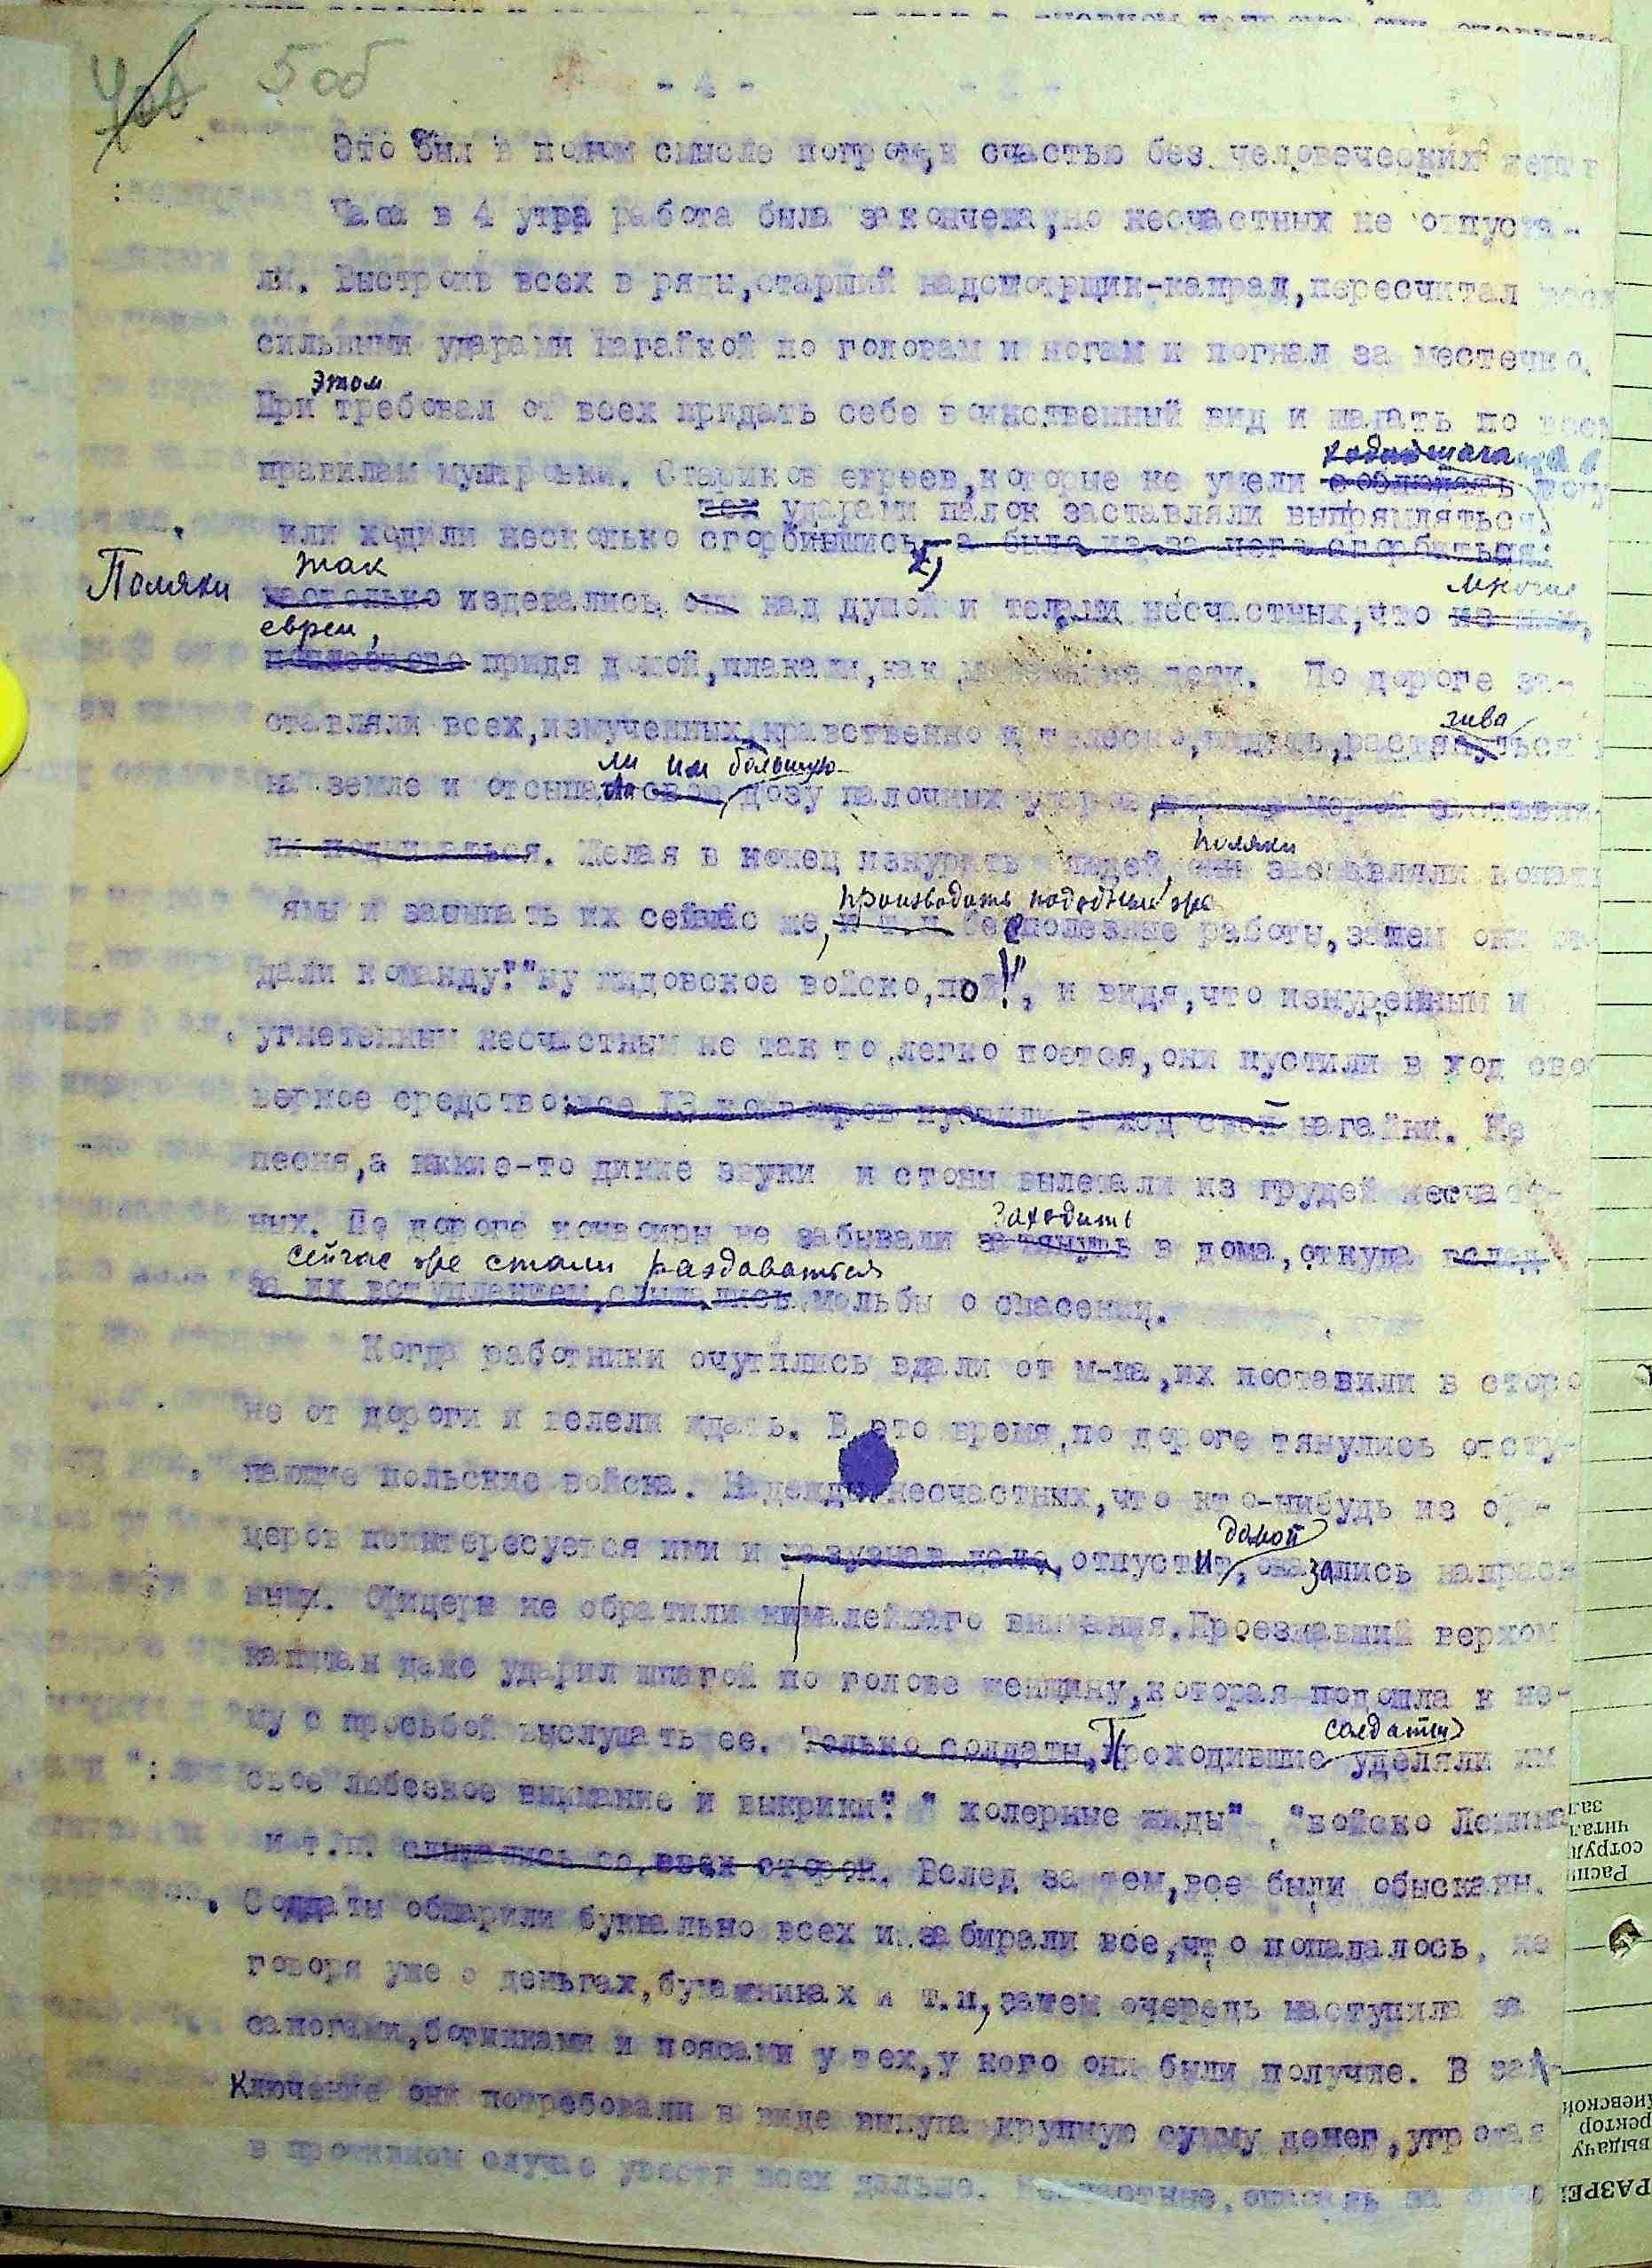 5 об
- 4 -
Это был в полном смысле погром, к счастью без человеческих жертв
Часа в 4 утра работа была закончена, но несчастных не отпуста-
ли. Выстроив всех в ряды, старший надсмотрщик-капрал, пересчитал всех
сильными ударами нагайкой по головам и ногам и погнал за местечко.
этом
При требовал от всех придать себе воинственный вид и шагать по всем
правилам муштровки. Стариков евреев, которые не умели соблюдать ногу
тех ударами палок заставляли выпрямляться,
или ходили несколько сгорбившись, а было из-за чего сгорбиться:
Поляки так
настолько издевались они над душой и телами несчастных, что из них,
многие
евреи,
придя домой, плакали, как маленькие дети. По дороге за-
ставляли всех, измученных нравственно и телесно, растягиваться
ли им большую
на земле и отсыпали свою дозу палочных ударов,
ли подниматься. Желая в конец изнурить людей, они заставляли копать
поляки
производить подобные же
ямы и засыпать их сейчас же, и т.п. бесполезные работы, затем они от-
дали команду: "ну жидовское войско, пой!", и видя, что изнуренным и
угнетенным несчастным не так то легко поется, они пустили в ход свое
верное средство: все 12 конвоиров пустили в ход свои нагайки. Не
песня, а какие-то дикие звуки и стоны вылетали из грудей несчаст-
ных. По дороге конвоиры не забывали заходить в дома, откуда вслед
сейчас же стали раздаваться
за их вступлением, слышались мольбы о спасении.
Когда работники очутились вдали от м-ка, их поставили в сторо
не от дороги и велели ждать. В это время, по дороге тянулись отсту-
пающие польские войска. Надежды несчастных, что кто-нибудь из офи-
церов поинтересуется ими и разузнав дело, отпустит, оказались напрас-
домой
ными. Офицеры не обратили ни малейшаго внимания. Проезжавший верхом
капитан даже ударил шпагой по голове женщину, которая подошла к не-
му с просьбой выслушать ее. Только солдаты, Проходившие уделяли им
солдаты
свое любезное внимание и выкрики: "холерные жиды", "войско Ленина
и т.п. слышались со всех сторон. Вслед за тем, все были обысканы.
Солдаты обшарили буквально всех и забирали все, что попадалось, не
говоря уже о деньгах, бумажниках и т.п, затем очередь наступила за
сапогами, ботинками и поясами у тех, у кого они были получше. В за-
ключение они потребовали в виде выкупа крупную сумму денег, угрожая
в противном случае увести всех дальше. Несчастные,